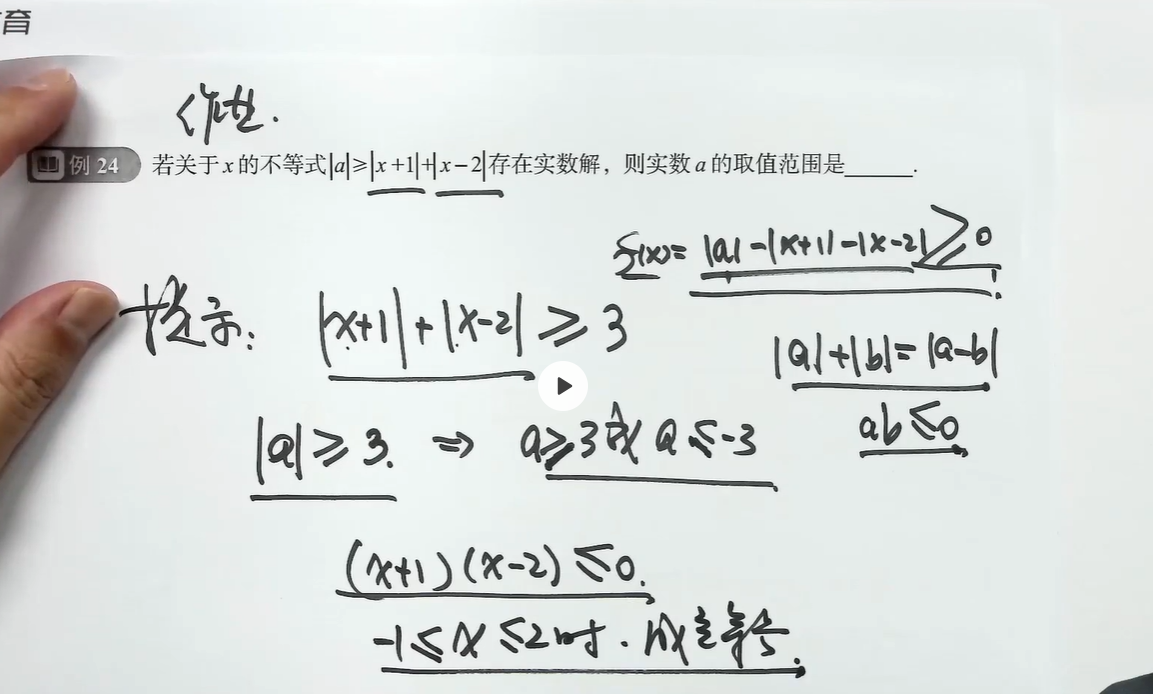 育
作业.
例 24 若关于 x 的不等式|a|≥|x+1|+|x-2|存在实数解，则实数 a 的取值范围是______.
f(x)= |a|-|x+1|-|x-2|≥0
提示: |x+1|+|x-2|≥3
|a|+|b|=|a-b|
|a|≥3. ⇒ a≥3或a≤-3
ab≤0
(x+1)(x-2)≤0.
-1≤x≤2时.成立等号.